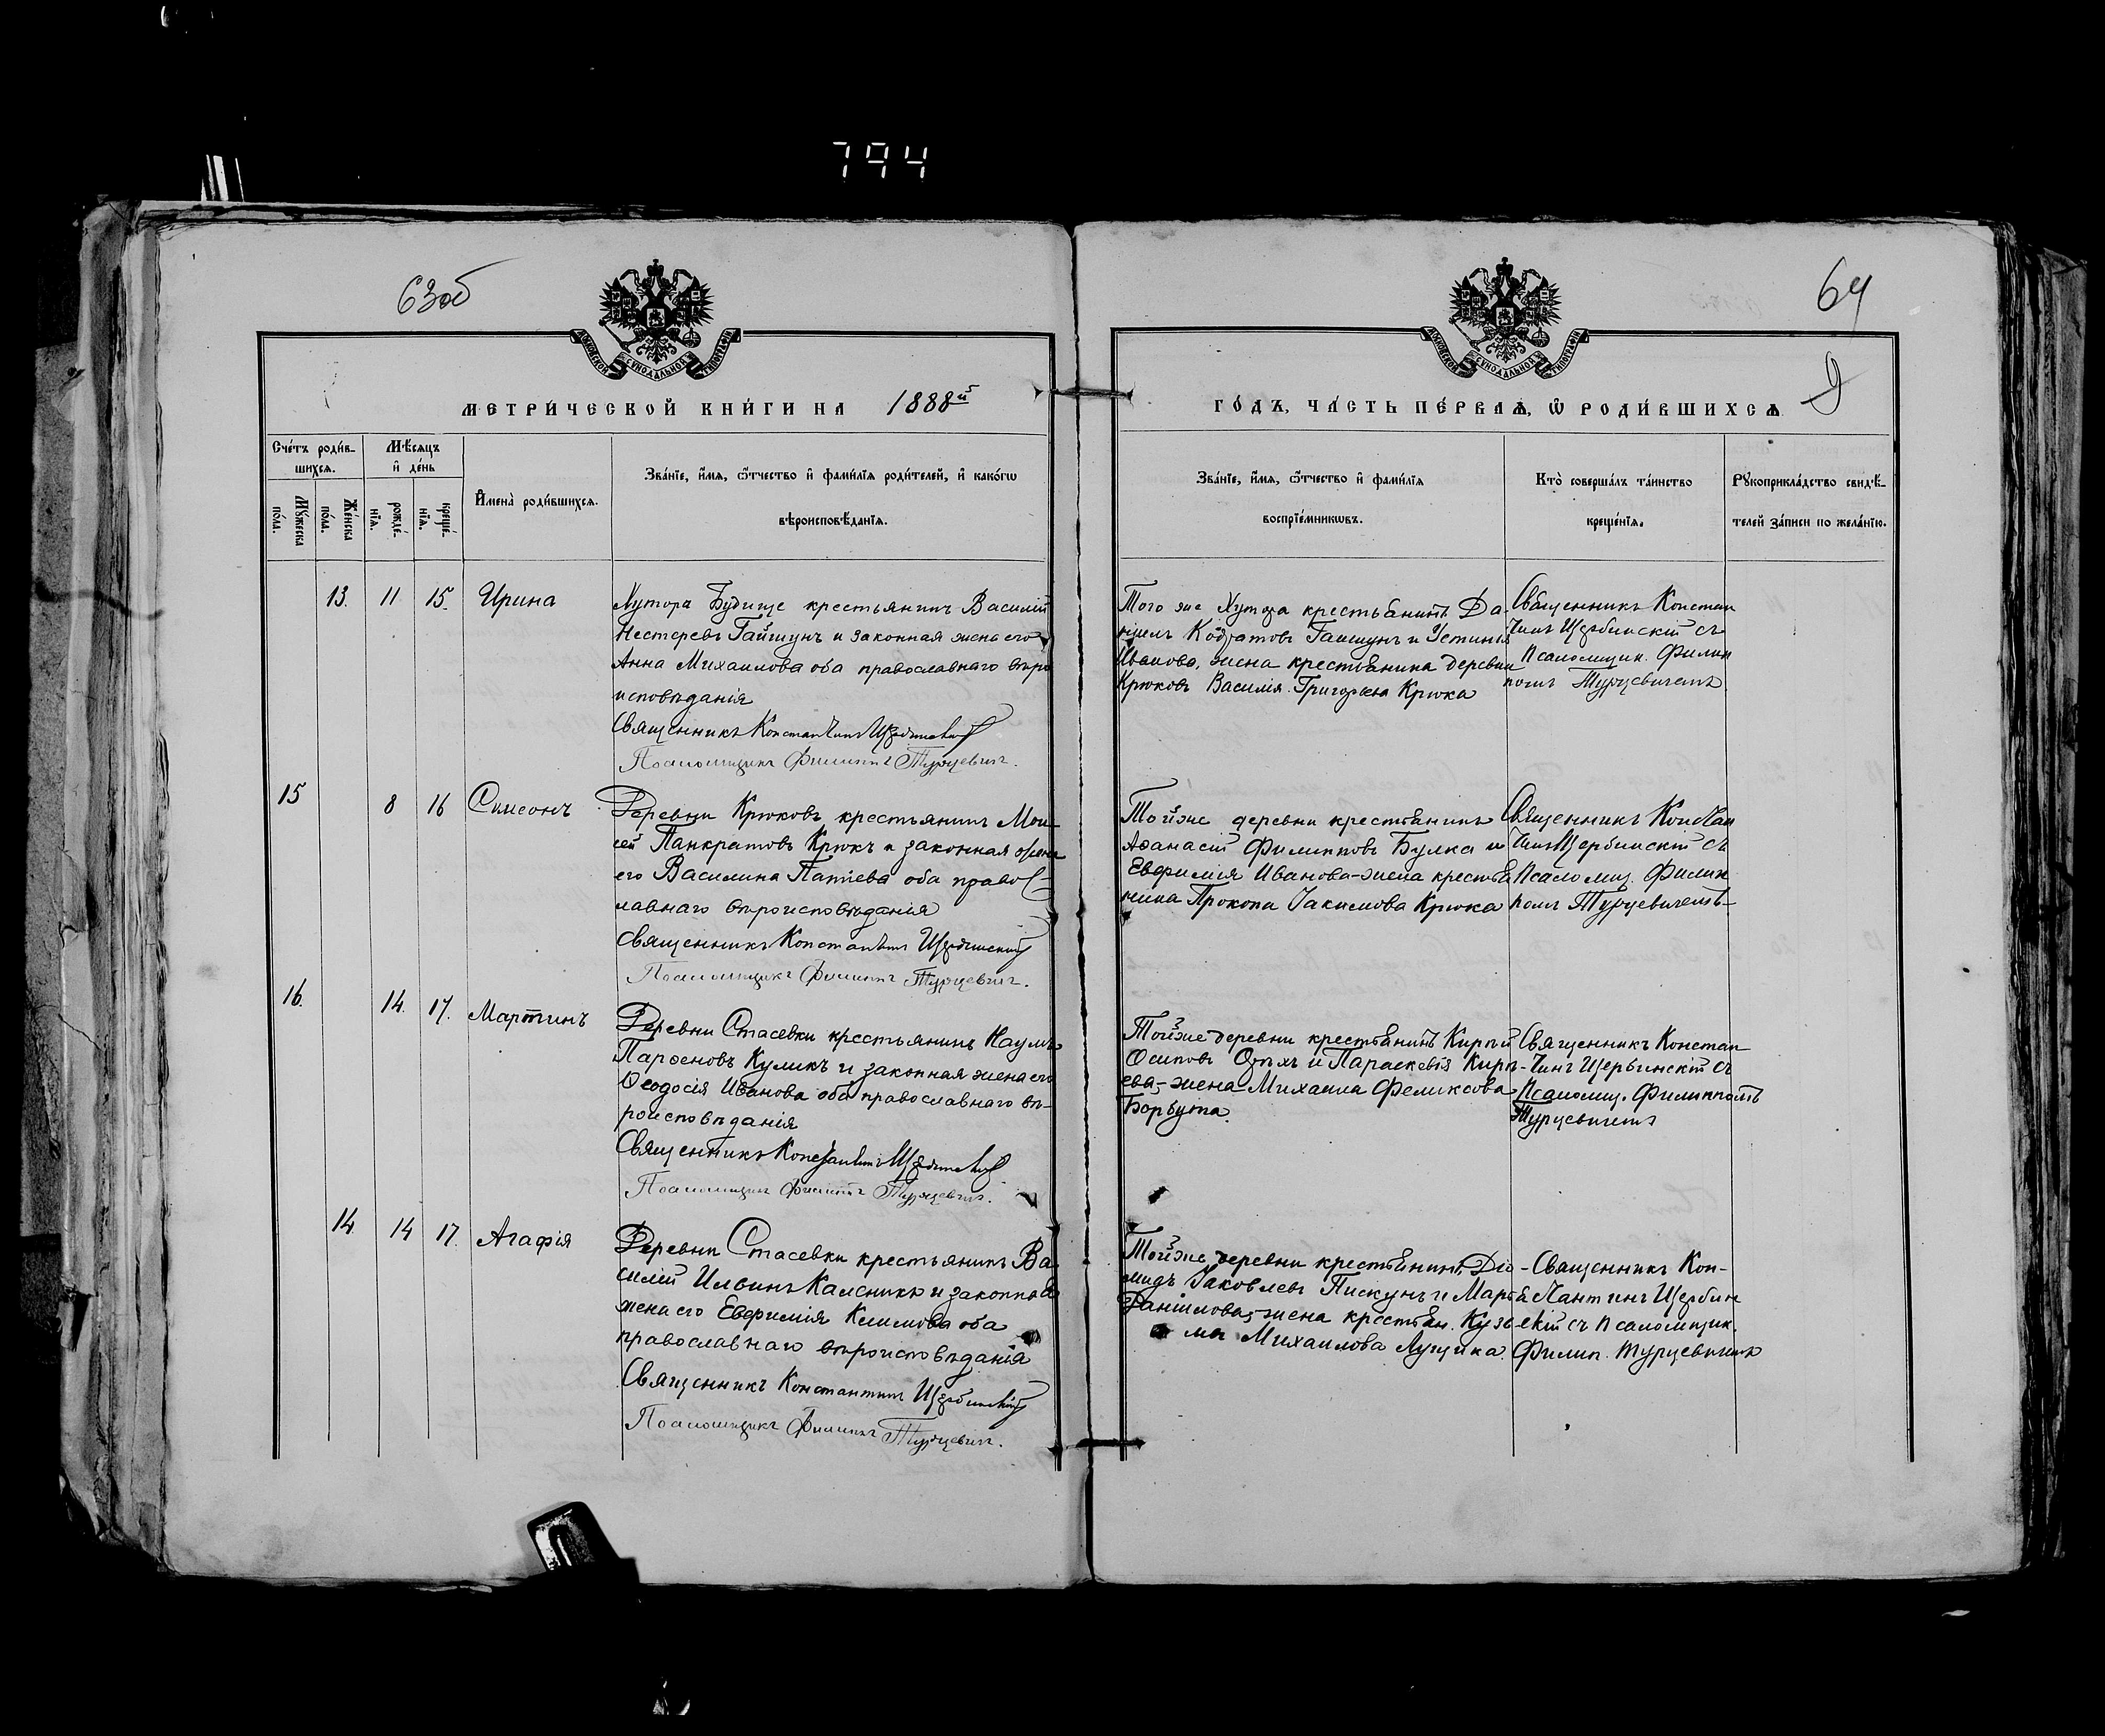 794
63об
64
9
МОСКОВСКОЙ СѴНОДАЛЬНОЙ ТИПОГРАФІИ
МОСКОВСКОЙ СѴНОДАЛЬНОЙ ТИПОГРАФІИ
МЕТРИ́ЧЕСКОЙ КНИ́ГИ НА 1888й
ГО́ДЪ, ЧА́СТЬ ПЕ́РВАѦ, Ѽ РОДИ́ВШИХСѦ
Сче́тъ роди́в-
шихсѧ.
Мꙋ́жеска по́ла.
Же́нска по́ла.
Мѣ́сѧцъ
и҆ де́нь
рожде́-
нїѧ.
креще́-
нїѧ.
И҆мена̀ роди́вшихсѧ.
Зва́нїе, и҆́мѧ, ѻ҆́тчество и҆ фами́лїѧ роди́телей, и҆ како́гѡ
вѣроисповѣ́данїѧ.
Зва́нїе, и҆́мѧ, ѻ҆́тчество и҆ фами́лїѧ
воспрїе́мникѡвъ.
Кто̀ соверша́лъ та́инство
креще́нїѧ.
Рꙋкоприкла́дство свидѣ́-
телей за́писи по жела́нїю.
13. 11 15. Ирина
Хутора Будище крестьянинъ Василій
Нестеревъ Гайшунъ и законная жена его
Анна Михаилова оба православнаго вѣро
исповѣданія
Священникъ Константинъ Щербинскій
Псаломщикъ Филиппъ Турцевичъ.
Того же Хутора крестьянинъ Да-
ніилъ Кодратовъ Гайшунъ и Устинія
Иванова, жена крестьянина деревни
Крюковъ Василія Григорьева Крюка
Священникъ Констан
тинъ Щербинскій съ
Псаломщик. Филип
помъ Турцевичемъ
15 8 16 Симеонъ
Деревни Крюковъ крестьянинъ Мои
сей Панкратовъ Крюкъ и законная жена
его Василина Патіева оба правос-
лавнаго вѣроисповѣданія
Священникъ Константинъ Щербинскій
Псаломщикъ Филиппъ Турцевичъ.
Тойже деревни крестьянинъ
Аѳанасій Филипповъ Булка и
Евфимія Иванова-жена крестья
нина Прокопа Іакимова Крюка
Священникъ Констан
тинъ Щербинскій съ
Псаломщ. Филип
помъ Турцевичемъ-
16. 14. 17. Мартинъ
Деревни Стасевки крестьянинъ Наумъ
Парѳеновъ Куликъ и законная жена его
Ѳеодосія Иванова оба православнаго вѣ-
роисповѣданія
Священникъ Константинъ Щербинскій
Псаломщикъ Филиппъ Турцевичъ.
Тойже деревни крестьянинъ Кирій
Осиповъ и Параскевія Кирѣ-
ева-жена Михаила Феликсова
Борбута.
Священникъ Констан
тинъ Щербинскій съ
Псаломщ. Филиппомъ
Турцевичемъ
14. 14 17. Агафія
Деревни Стасевки крестьянинъ Ва
силій Ильинъ Калсникъ и законная
жена его Евфимія Климова оба
православнаго вѣроисповѣданія
Священникъ Константинъ Щербинскій
Псаломщикъ Филиппъ Турцевичъ.
Тойже деревни крестьянинъ Діо-
мидъ Іаковлевъ Пискунъ и Марѳа
Даніилова-жена крестьян. Кузь
мы Михаилова Лущика.
Священникъ Кон-
стантинъ Щербин
скій съ Псаломщик.
Филип. Турцевичемъ